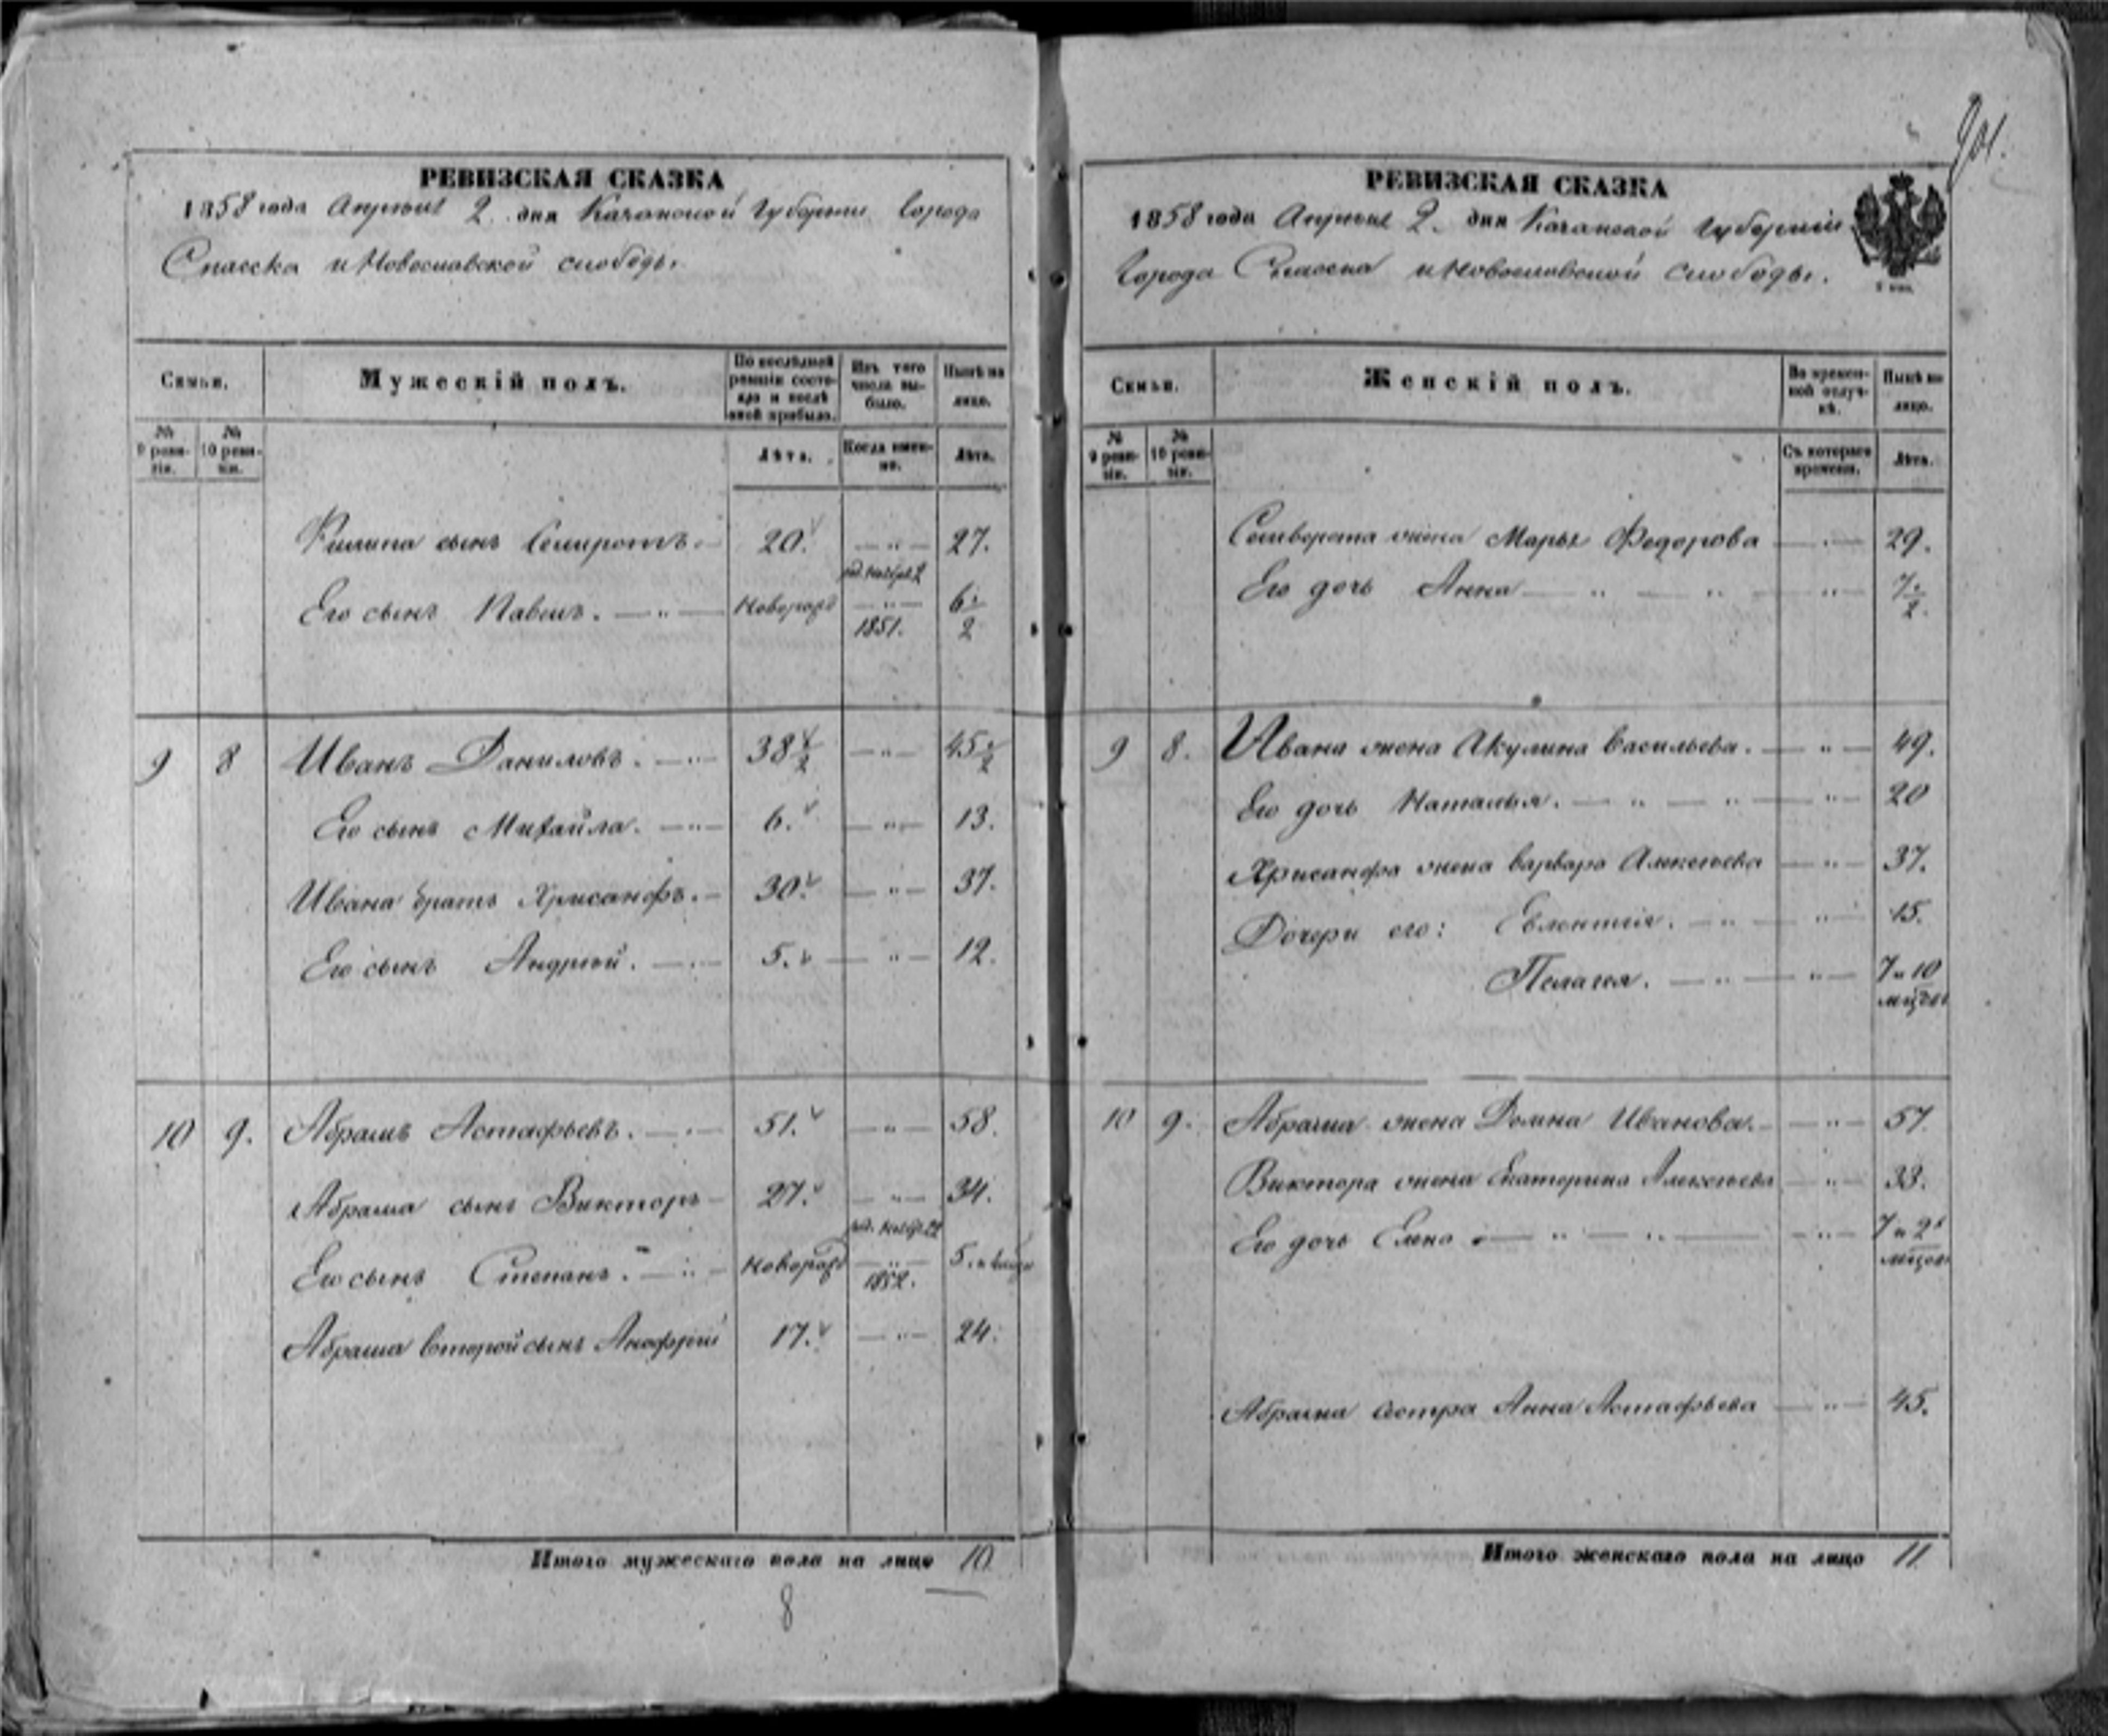 РЕВИЗСКАЯ СКАЗКА
1858 года Апрѣля 2. дня Казанской Губернии города
Спасска и Новоспасской слободы.
Семьи.
Мужескій полъ.
По послѣдней ревизіи состояло и послѣ оной прибыло.
Изъ того числа выбыло.
Нынѣ на лицо.
№ 9 ревизіи.
№ 10 ревизіи.
Лѣта.
Когда именно.
Лѣта.
сынъ 20. — „ — 27.
Его сынъ Павелъ. — „ — Новорож 2 — „ — 1851. 6 1/2
9 8 Иванъ Даниловъ. — „ — 38 1/2 — „ — 45 1/2
Его сынъ Михайла. — „ — 6. — „ — 13.
Ивана братъ Хрисанфъ. — 30. — „ — 37.
Его сынъ Андрей. — „ — 5. — „ — 12.
10 9. Абрамъ Астафьевъ. — „ — 51. — „ — 58.
Абрама сынъ Викторъ — 27. — „ — 34.
Его сынъ Степанъ. — „ — Новорож — „ — 1852. 5.
Абрама второй сынъ Анофрій 17. — „ — 24.
Итого мужескаго пола на лицо 10
8
РЕВИЗСКАЯ СКАЗКА
1858 года Апрѣля 2. дня Казанской Губерніи
города Спасска и Новоспасской слободы.
Семьи.
Женскій полъ.
Во временной отлучкѣ.
Нынѣ на лицо.
№ 9 ревизіи.
№ 10 ревизіи.
Съ котораго времени.
Лѣта.
жена Марья Федорова — „ — 29.
Его дочь Анна — „ — „ — „ — 7 1/2.
9 8. Ивана жена Акулина Васильева. — „ — 49.
Его дочь Наталья. — „ — „ — „ — 20
Хрисанфа жена Варвара Алексѣева — „ — 37.
Дочери его: Евлампия. — „ — „ — 15.
Пелагея. — „ — „ — 7 и 10 мѣсец
10 9. Абрама жена Домна Иванова. — „ — 57.
Виктора жена Екатерина Алексѣева — „ — 33.
Его дочь Елена — „ — „ — „ — 7 и 2
Абрама сестра Анна Астафьева — „ — 45.
Итого женскаго пола на лицо 11